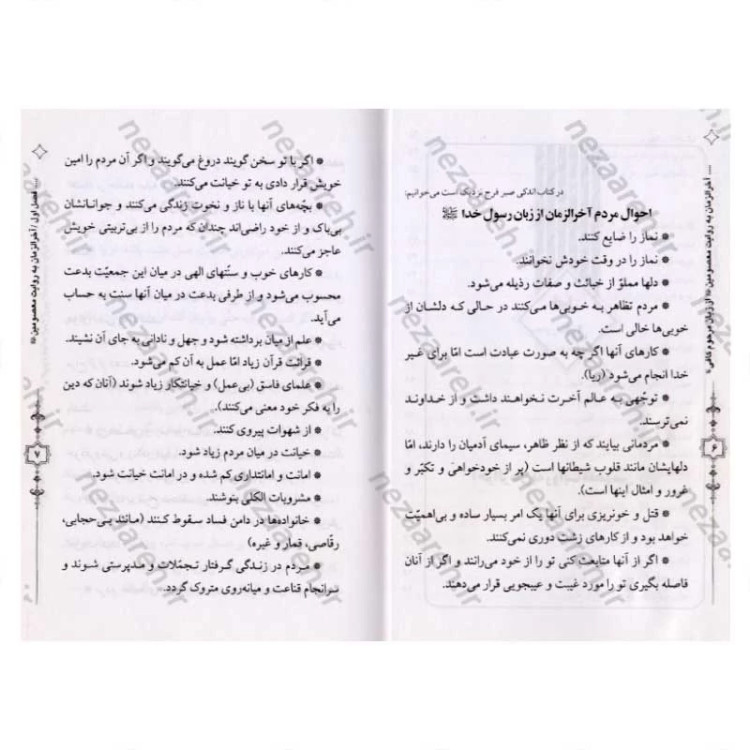 در کتاب اندکی صبر فرج نزدیک است می‌خوانیم:
احوال مردم آخرالزمان از زبان رسول خدا ﷺ
● نماز را ضایع کنند.
● نماز را در وقت خودش نخوانند.
● دلها مملوّ از خباثت و صفات رذیله می‌شود.
● مردم تظاهر به خوبی‌ها می‌کنند در حالی که دلشان از
خوبی‌ها خالی است.
● کارهای آنها اگر چه به صورت عبادت است امّا برای غیر
خدا انجام می‌شود (ریا).
● توجّهی به عالم آخرت نخواهند داشت و از خداوند
نمی‌ترسند.
● مردمانی بیایند که از نظر ظاهر، سیمای آدمیان را دارند، امّا
دلهایشان مانند قلوب شیطانها است (پر از خودخواهی و تکبّر و
غرور و امثال اینها است).
● قتل و خونریزی برای آنها یک امر بسیار ساده و بی‌اهمیّت
خواهد بود و از کارهای زشت دوری نمی‌کنند.
● اگر از آنها متابعت کنی تو را از خود می‌رانند و اگر از آنان
فاصله بگیری تو را مورد غیبت و عیبجویی قرار می‌دهند.
آخرالزمان به روایت معصومین از زبان مرحوم کافی
۶
● اگر با تو سخن گویند دروغ می‌گویند و اگر آن مردم را امین
خویش قرار دادی به تو خیانت می‌کنند.
● بچّه‌های آنها با ناز و نخوت زندگی می‌کنند و جوانانشان
بی‌باک و از خود راضی‌اند چندان که مردم را از بی‌تربیتی خویش
عاجز می‌کنند.
● کارهای خوب و سنّتهای الهی در میان این جمعیّت بدعت
محسوب می‌شود و از طرفی بدعت در میان آنها سنت به حساب
می‌آید.
● علم از میان برداشته شود و جهل و نادانی به جای آن نشیند.
● قرائت قرآن زیاد امّا عمل به آن کم می‌شود.
● علمای فاسق (بی‌عمل) و خیانتکار زیاد شوند (آنان که دین
را به فکر خود معنی می‌کنند).
● از شهوات پیروی کنند.
● خیانت در میان مردم زیاد شود.
● امانت و امانتداری کم شده و در امانت خیانت شود.
● مشروبات الکلی بنوشند.
● خانواده‌ها در دامن فساد سقوط کنند (مانند بی‌حجابی،
رقّاصی، قمار و غیره)
● مردم در زندگی گرفتار تجمّلات و مدپرستی شوند و
سرانجام قناعت و میانه‌روی متروک گردد.
فصل اول / آخرالزمان به روایت معصومین
۷
nezaareh.ir